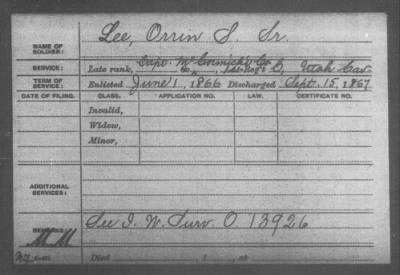 Lee, Orrin S. Sr.
NAME OF SOLDIER:
Capt. McCormick's Co.
SERVICE: Late rank, Co. , 1st Reg't C, Utah Cav.
TERM OF SERVICE: Enlisted June 1, 1866 Discharged Sept. 15, 1867
DATE OF FILING. CLASS. APPLICATION NO. LAW. CERTIFICATE NO.
Invalid,
Widow,
Minor,
ADDITIONAL SERVICES:
REMARKS: See I. W. Surv. O 13926
MM
Died , 1 , at